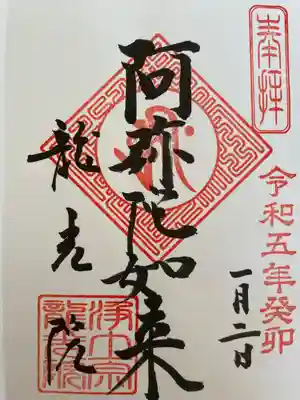 奉拝
令和五年癸卯
一月二日
阿弥陀如来
龍光院
浄土宗